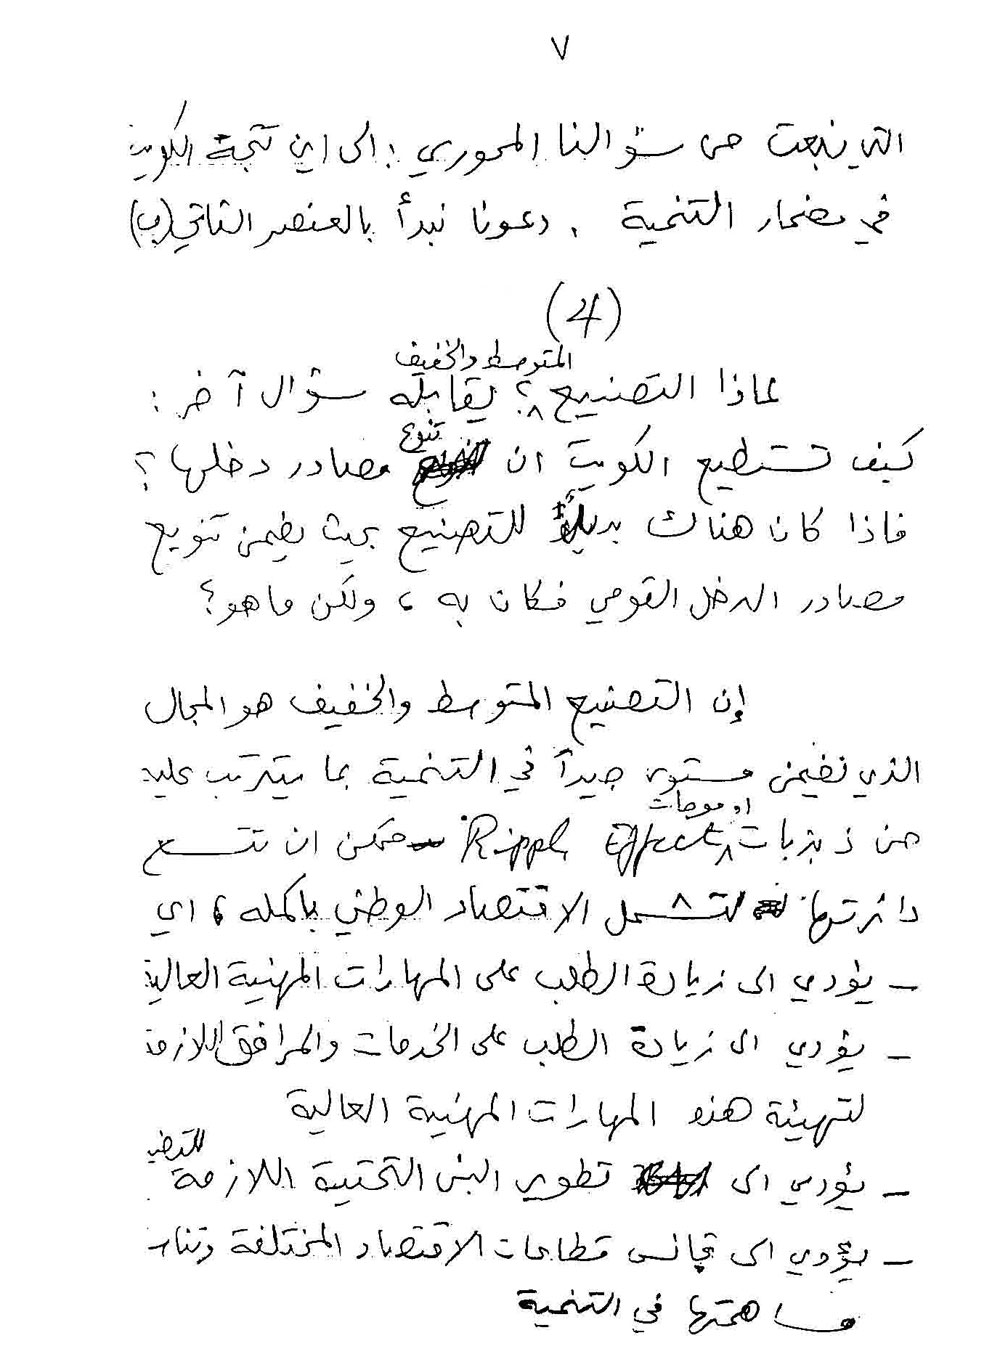 ٧
التي نبعت من سؤالنا المحوري : الى اين تتجه الكويت
في مضمار التنمية . دعونا نبدأ بالعنصر الثاني (ب)
(4)
المتوسط والخفيف
لماذا التصنيع ؟ يقابله سؤال آخر :
تنوع
كيف تستطيع الكويت ان مصادر دخلها ؟
فاذا كان هناك بديلاً للتصنيع بحيث يضمن تنويع
مصادر الدخل القومي فكان به ، ولكن ما هو ؟
إن التصنيع المتوسط والخفيف هو المجال
الذي نضمن مستوى جيداً في التنمية بما يترتب عليه
او موجات
من ذبذبات Ripple Effect ممكن ان تتسع
دائرتها لتشمل الاقتصاد الوطني باكمله ، اي
– يؤدي الى زيادة الطلب على المهارات المهنية العالية
– يؤدي الى زيادة الطلب على الخدمات والمرافق اللازمة
لتهيئة هذه المهارات المهنية العالية
– يؤدي الى تطوير البنى التحتية اللازمة
– يؤدي الى تجانس قطاعات الاقتصاد المختلفة
مساهمتها في التنمية